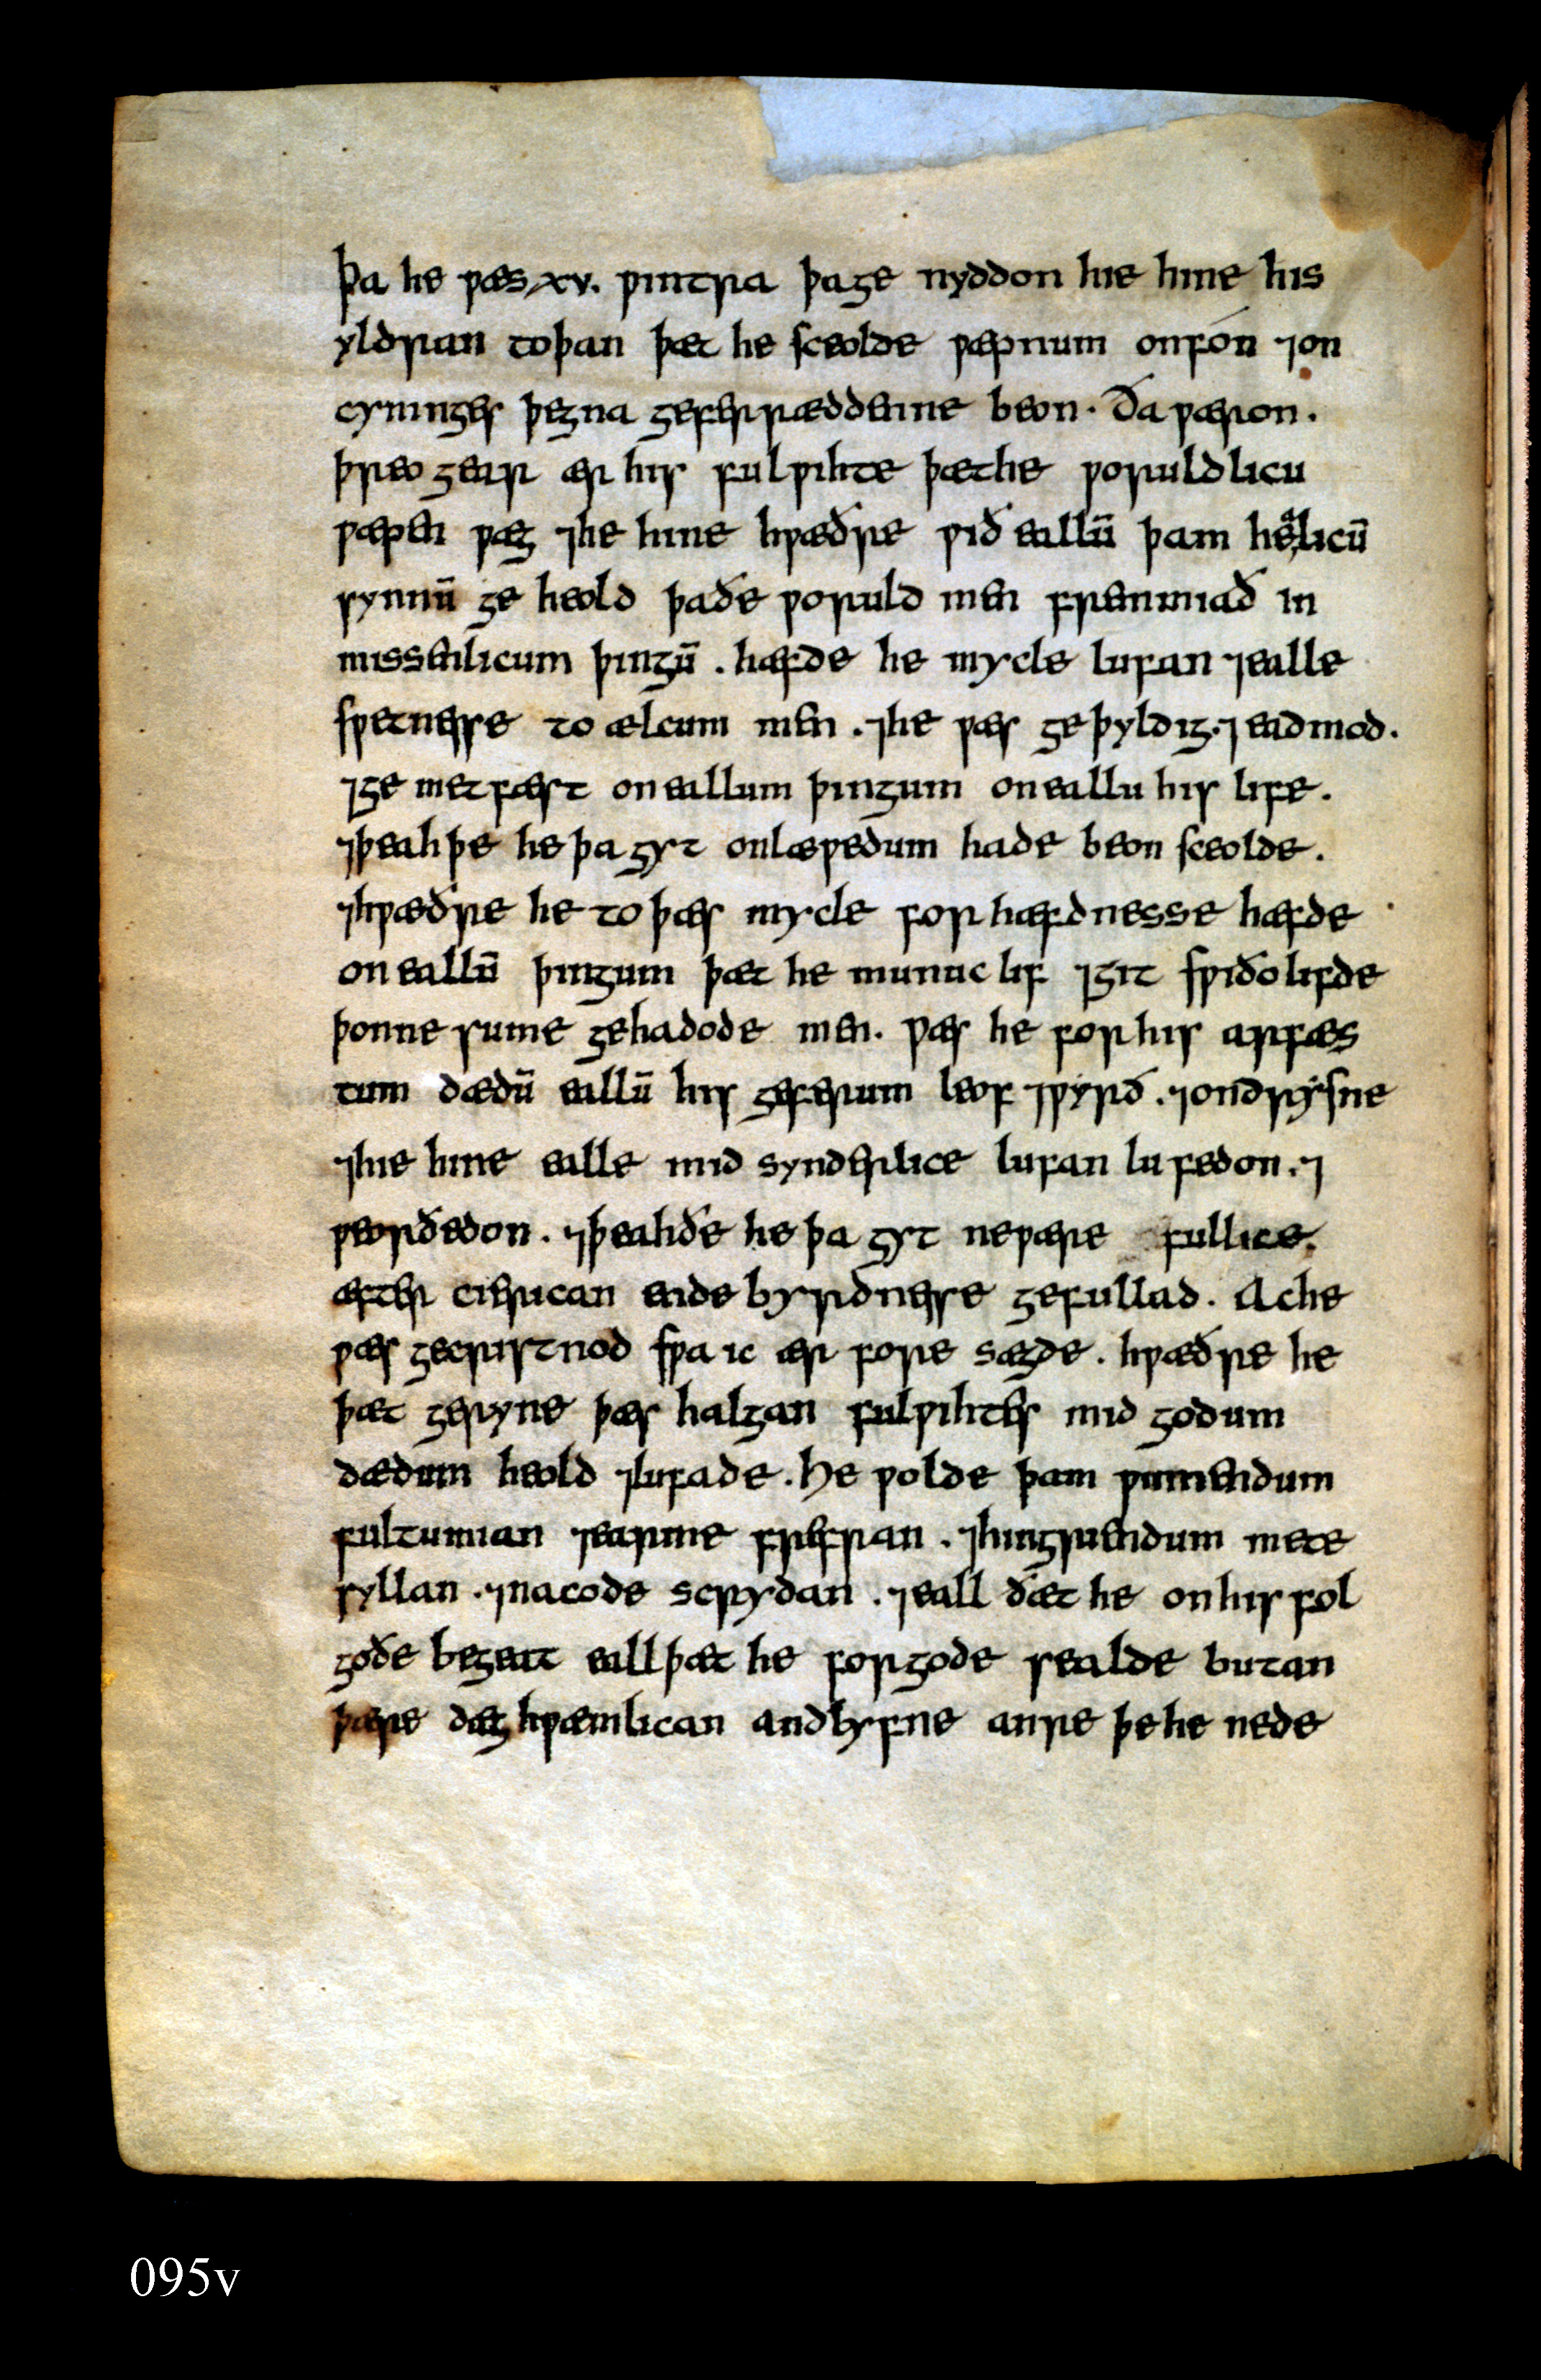 þa he ƿæs xv. ƿintra þa ge nyddon hie hine his
yldran to þan þæt he sceolde ƿæpnum onfón ⁊ on
cyninges þegna geferræddenne beon. Ða ƿæron.
þreo gear ær his fulƿihte þæt he ƿoruldlicu
ƿæpen ƿæg ⁊ he hine hƿæðre ƿið eallū þam heᵃlicū
synnū ge heold þa ðe ƿoruld men fremmað in
missenlicum þingū. hæfde he mycle lufan ⁊ ealle
sƿetnesse to ælcum men. ⁊ he ƿæs ge þyldig. ⁊ eadmod.
⁊ ge metfæst on eallum þingum on eallu his life.
⁊ þeah þe he þa gyt on læƿedum hade beon sceolde.
⁊ hƿæðre he to þæs mycle forhæfdnesse hæfde
on eallū þingum þæt he munuc lif ⁊ git sƿiðo lifde
þonne sume gehadode men. ƿæs he for his arfæs
tum dædū eallū his geferum leof ⁊ ƿyrð. ⁊ ondrysne
⁊ hie hine ealle mid synderlice lufan lufedon. ⁊
ƿeorðedon. ⁊ þeah ðe he þa gyt ne ƿære fullice.
æfter cierican ende byrdnesse gefullad. Ac he
ƿæs gecristnod sƿa ic ær fore sægde. hƿæðre he
þæt geryne þæs halgan fulƿihtes mid godum
dædum heold ⁊ lufade. He ƿolde þam ƿinnendum
fultumian ⁊ earme frefran. ⁊ hingriendum mete
syllan. ⁊ nacode scrydan. ⁊ eall ðæt he on his fol
goðe begeat eall þæt he for gode sealde butan
þære dæg hƿæmlican andlyfne anre þe he nede
095v